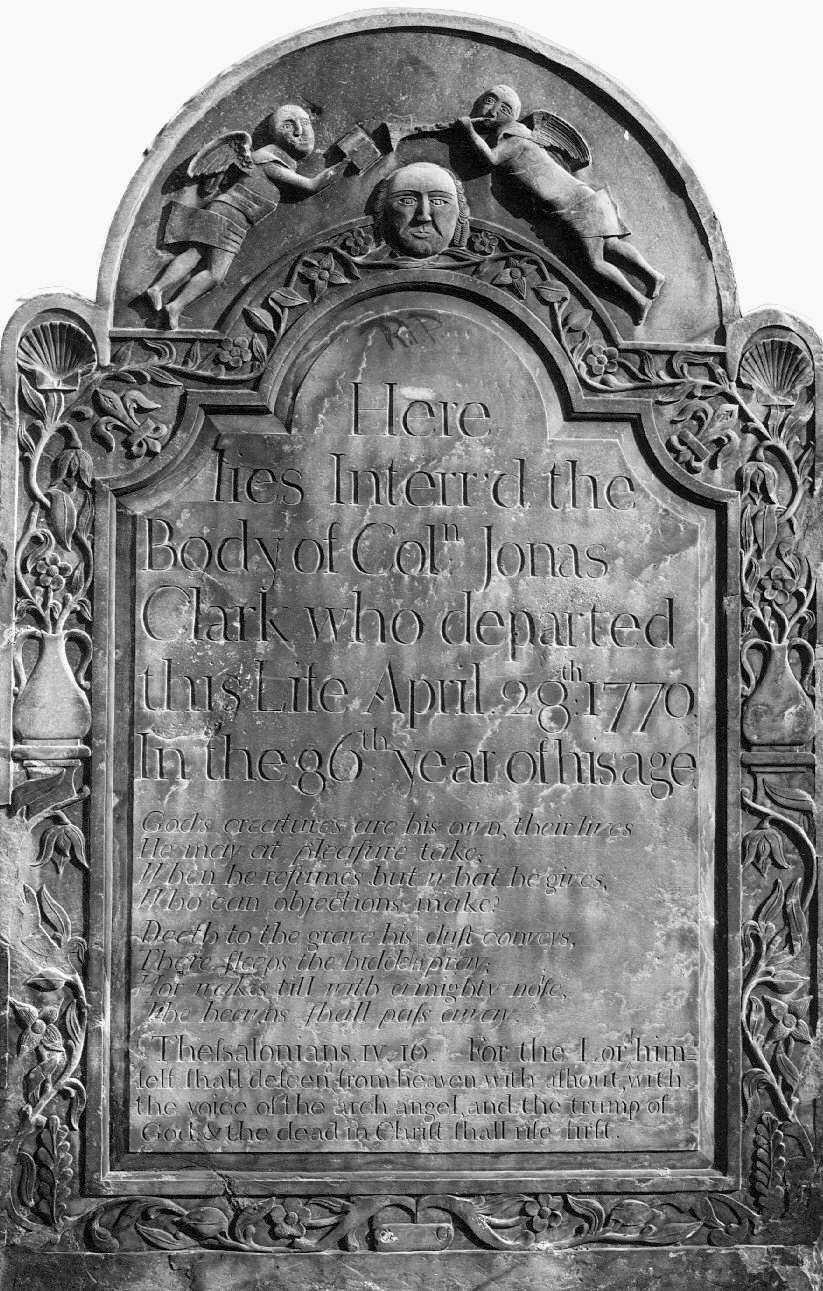 R.I.P.
Here
lies Interr'd the
Body of Col:ⁿ Jonas
Clark who departed
this Life April 28:ᵗʰ 1770
In the 86:ᵗʰ year of his age
God's creatures are his own, their lives
He may at pleaſure take;
When he reſumes but what he gives,
Who can objections make?
Death to the grave his duſt conveys,
There ſleeps the hidden prey;
Nor wakes till with a mighty noſe,
The heav'ns ſhall paſs away.
Theſsalonians IV. 16. For the Lorᵈ him-
ſelf ſhall deſcenᵈ from heaven with a ſhout, with
the voice of the arch angel, and the trump of
God & the dead in Chriſt ſhall riſe firſt.